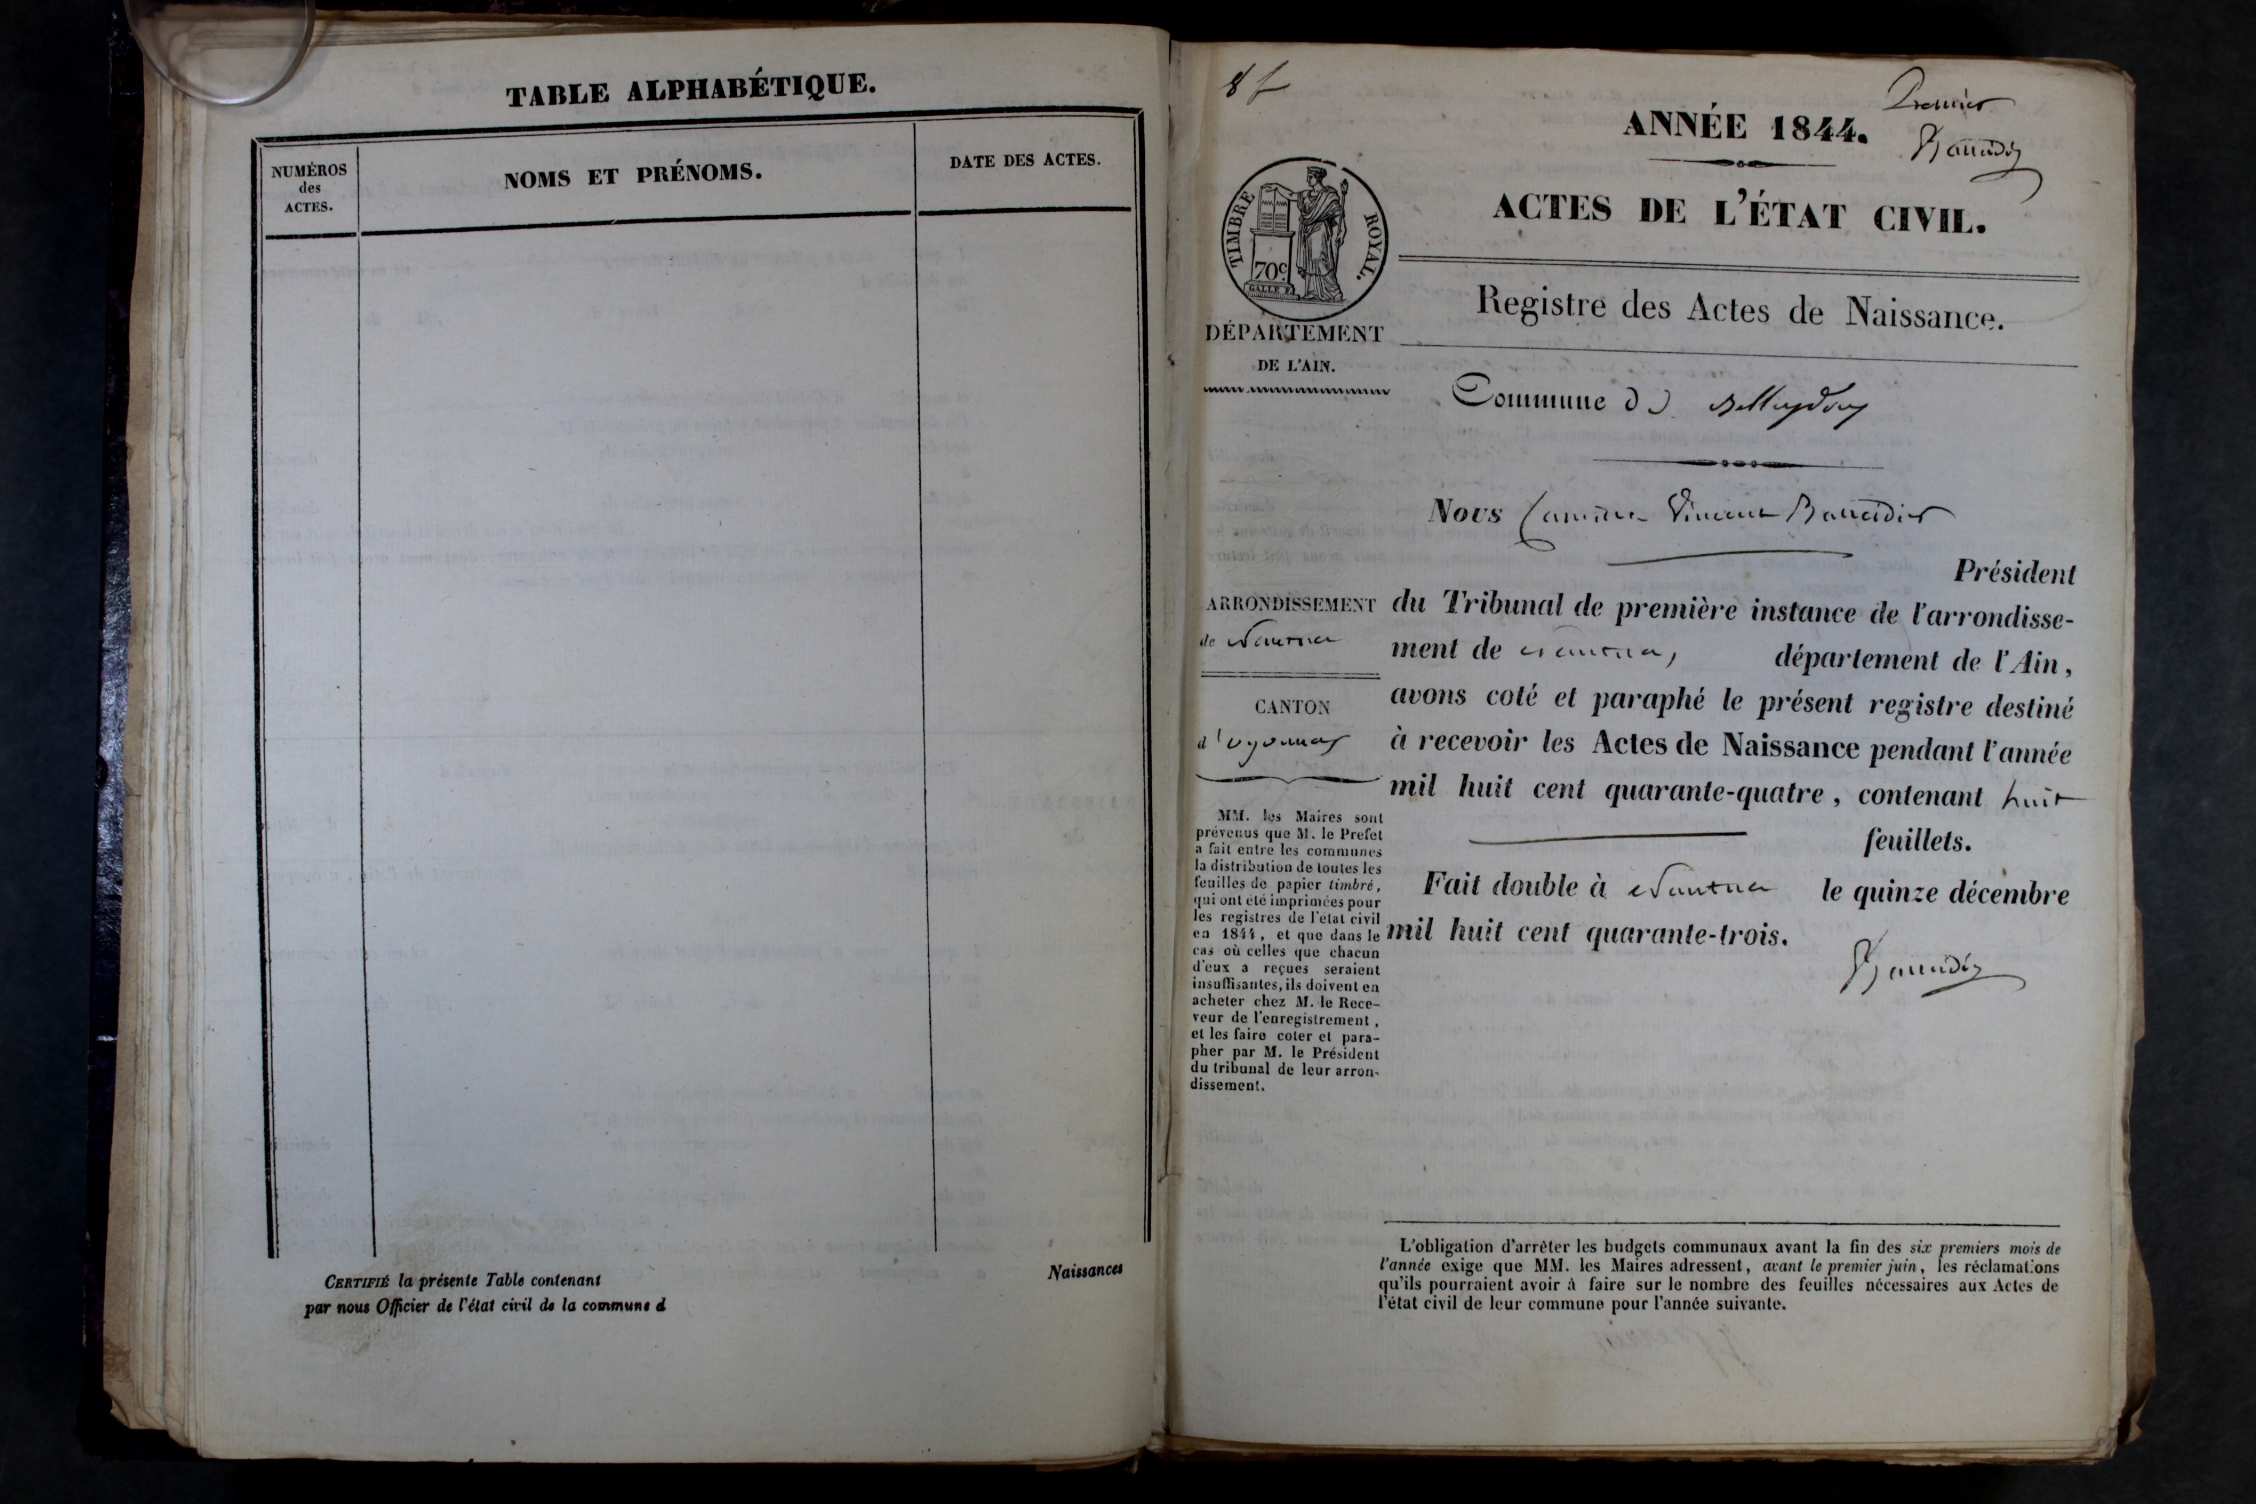 TABLE ALPHABÉTIQUE.
NUMÉROS
des
ACTES.
NOMS ET PRÉNOMS.
DATE DES ACTES.
CERTIFIÉ la présente Table contenant
Naissances
par nous Officier de l'état civil de la commune d
8 f
Premier
ANNÉE 1844.
ACTES DE L'ÉTAT CIVIL.
TIMBRE ROYAL.
70c
GALLE F.
Registre des Actes de Naissance.
DÉPARTEMENT
DE L'AIN.
Commune de Belleydoux
Nous Vincent Baudier
Président
du Tribunal de première instance de l'arrondisse-
ment de Nantua, département de l'Ain,
avons coté et paraphé le présent registre destiné
à recevoir les Actes de Naissance pendant l'année
mil huit cent quarante-quatre, contenant huit
feuillets.
Fait double à Nantua le quinze décembre
mil huit cent quarante-trois.
ARRONDISSEMENT
de Nantua
CANTON
d'oyonnax
MM. les Maires sont
prévenus que M. le Prefet
a fait entre les communes
la distribution de toutes les
feuilles de papier timbré,
qui ont été imprimées pour
les registres de l'état civil
en 1844, et que dans le
cas où celles que chacun
d'eux a reçues seraient
insuffisantes, ils doivent en
acheter chez M. le Rece-
veur de l'enregistrement,
et les faire coter et para-
pher par M. le Président
du tribunal de leur arron-
dissement.
L'obligation d'arrêter les budgets communaux avant la fin des six premiers mois de
l'année exige que MM. les Maires adressent, avant le premier juin, les réclamations
qu'ils pourraient avoir à faire sur le nombre des feuilles nécessaires aux Actes de
l'état civil de leur commune pour l'année suivante.